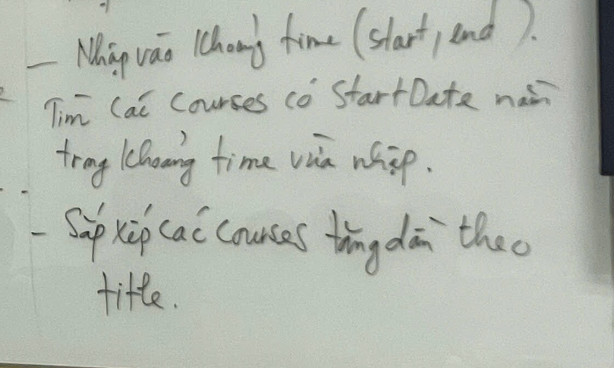 - Nhập vào khoảng time (start, end).
Tìm các courses có StartDate nằm
trong khoảng time vừa nhập.
- Sắp xếp các courses tăng dần theo
title.